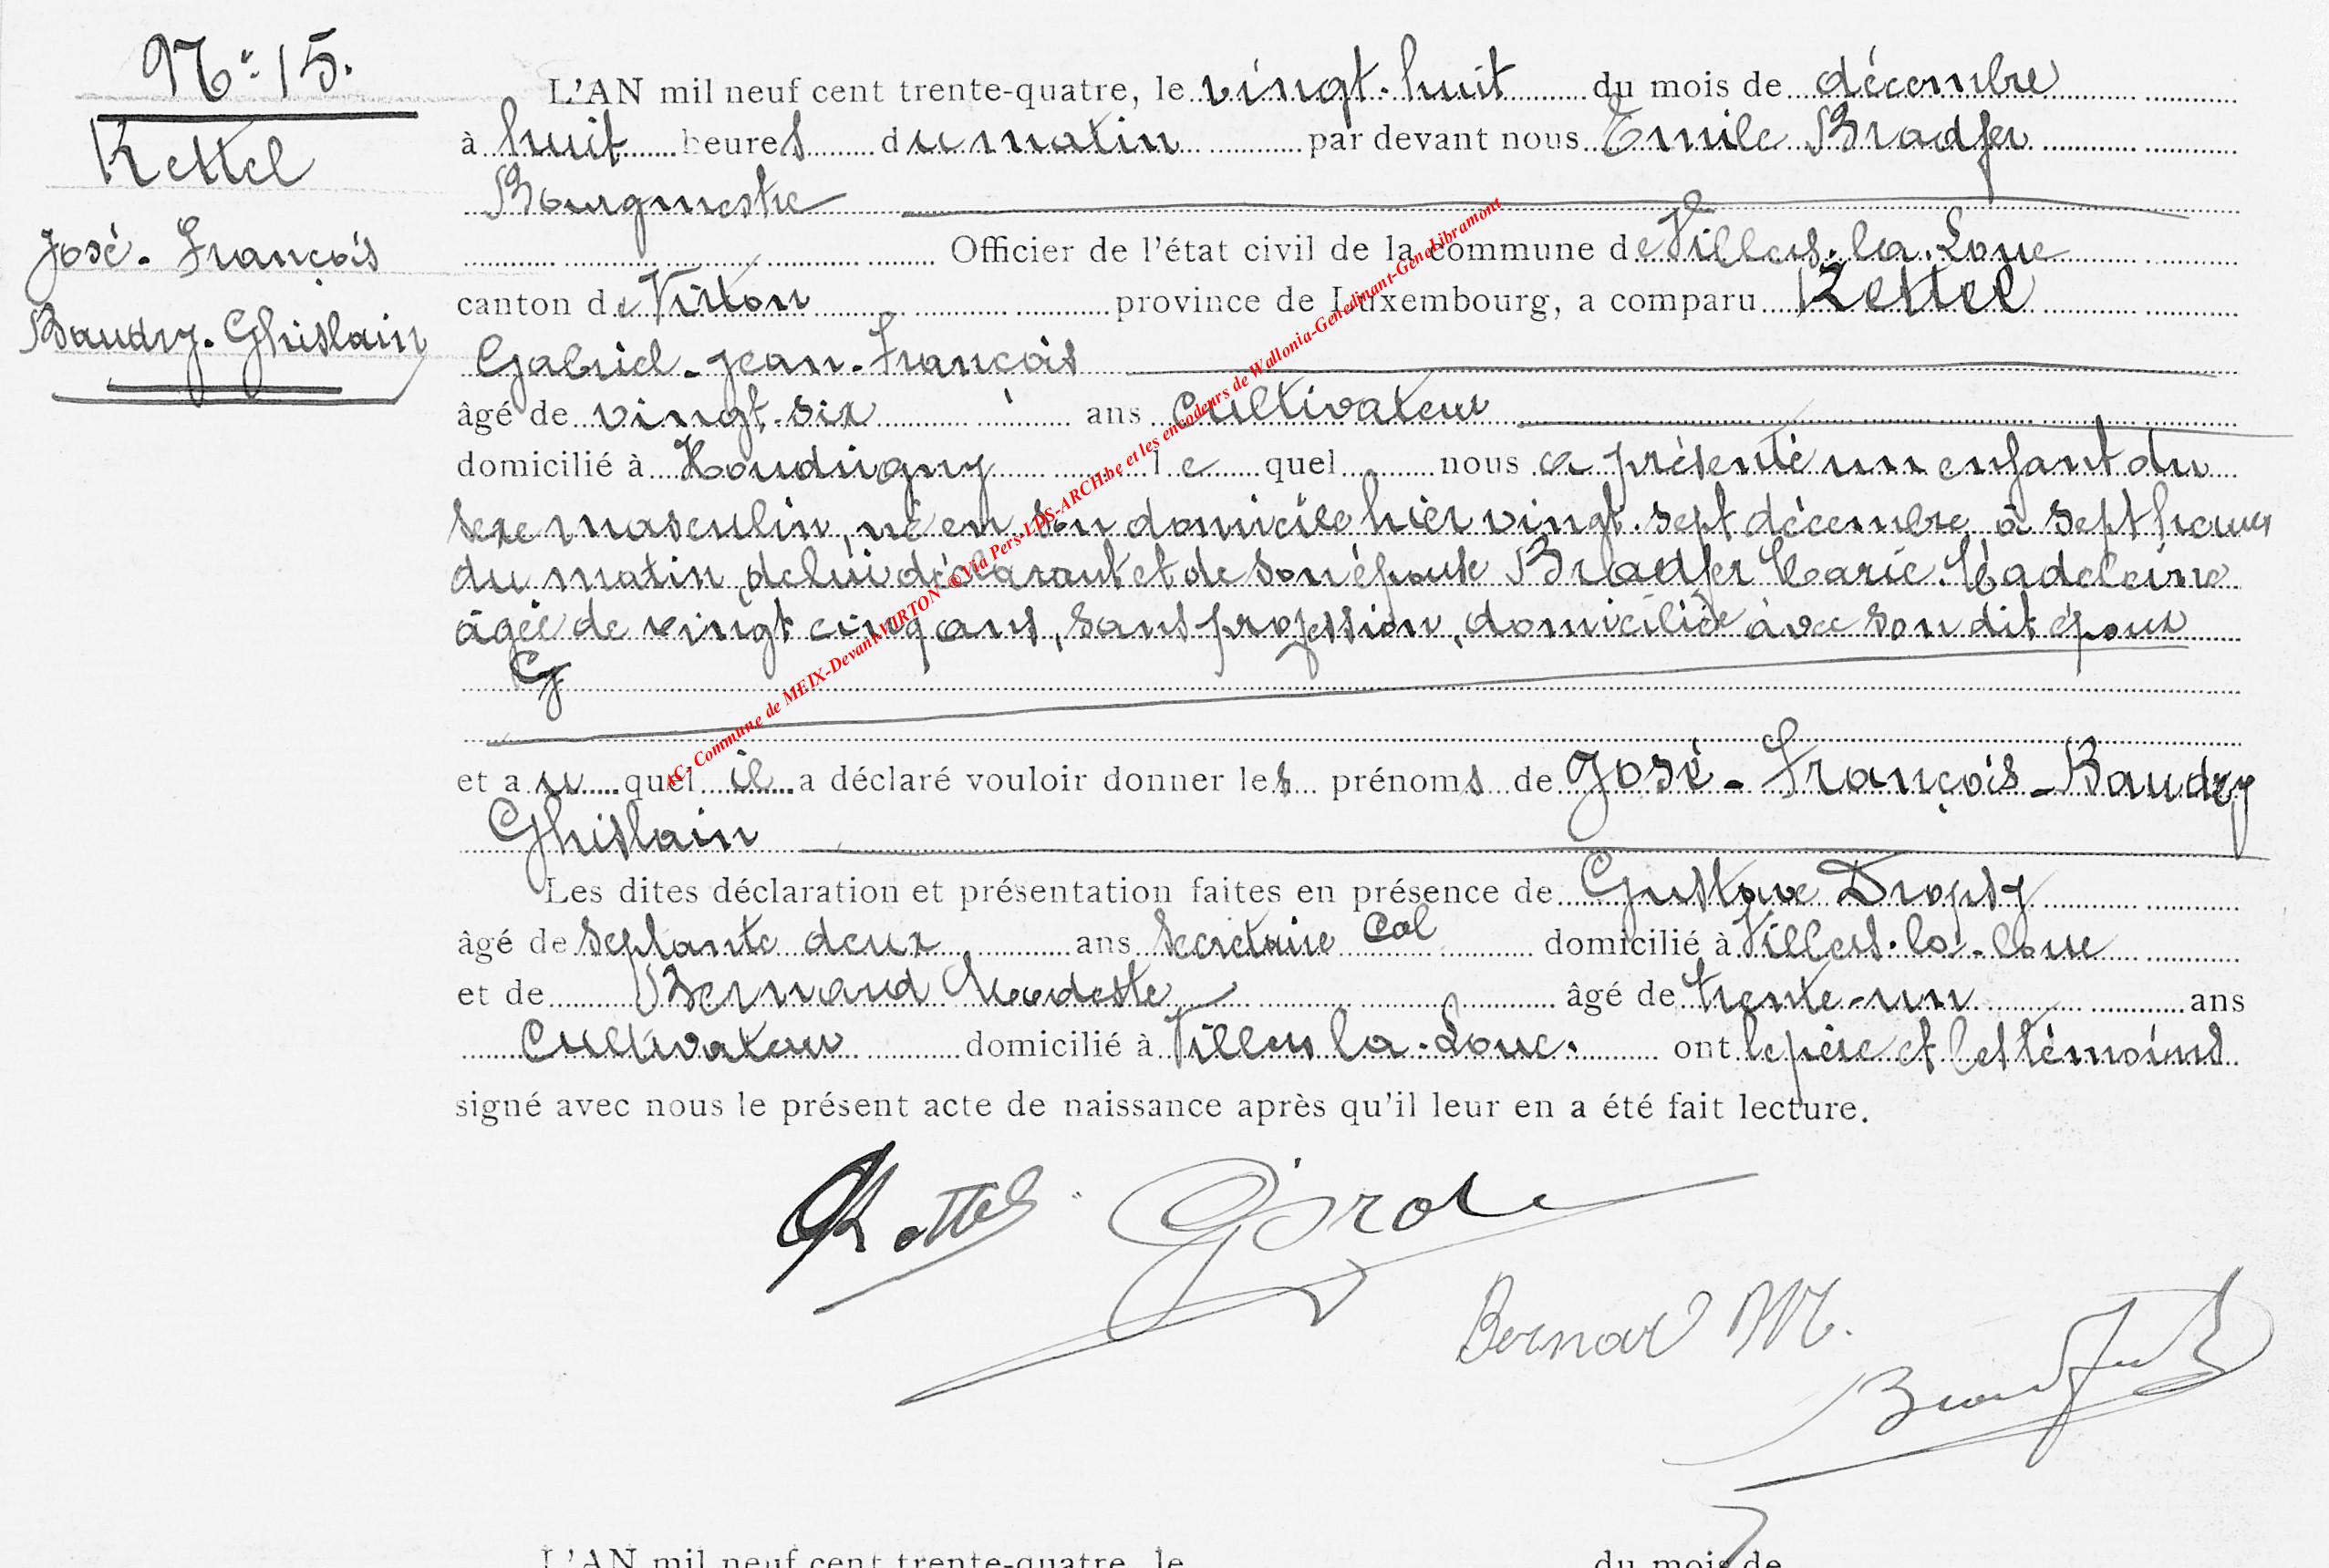 N° 15.
Kettel
José - François
Baudry - Ghislain
L'AN mil neuf cent trente-quatre, le vingt-huit du mois de décembre
à huit heures du matin par devant nous Emile Bradfer
Bourgmestre
Officier de l'état civil de la commune de Villers-la-Loue
canton de Virton province de Luxembourg, a comparu Kettel
Gabriel - Jean - François
âgé de vingt-six ans cultivateur
domicilié à Houdrigny lequel nous a présenté un enfant du
sexe masculin, né en son domicile hier vingt-sept décembre à sept heures
du matin, de lui déclarant et de son épouse Bradfer Marie-Madeleine
âgée de vingt cinq ans, sans profession, domiciliée avec son dit époux
et auquel il a déclaré vouloir donner les prénoms de José - François - Baudry
Ghislain
Les dites déclaration et présentation faites en présence de Gustave Dropsy
âgé de septante deux ans secrétaire cal domicilié à Villers-la-Loue
et de Bernard Modeste âgé de trente-un ans
cultivateur domicilié à Villers la-Loue. ont le père et les témoins
signé avec nous le présent acte de naissance après qu'il leur en a été fait lecture.
Kettel
Bernard M.
Bradfer
L'AN mil neuf cent trente-quatre, le du mois de
AC, Commune de MEIX-Devant-VIRTON © Via Pers-LDS-ARCH.be et les encodeurs de Wallonia-Genedinant-GeneLibramont